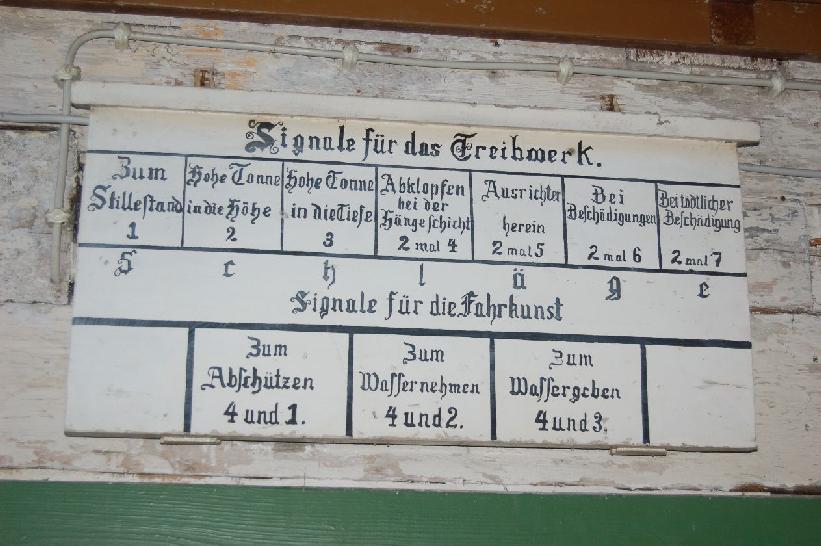 Signale für das Treibwerk.
Zum
Stillestand
1
Hohe Tonne
in die Höhe
2
Hohe Tonne
in die Tiefe
3
Abklopfen
bei der
Hängeschicht
2 mal 4
Ausrichter
herein
2 mal 5
Bei
Beschädigungen
2 mal 6
Bei tödtlicher
Beschädigung
2 mal 7
S c h l ä g e
Signale für die Fahrkunst
Zum
Abschützen
4 und 1.
Zum
Wassernehmen
4 und 2.
Zum
Wassergeben
4 und 3.